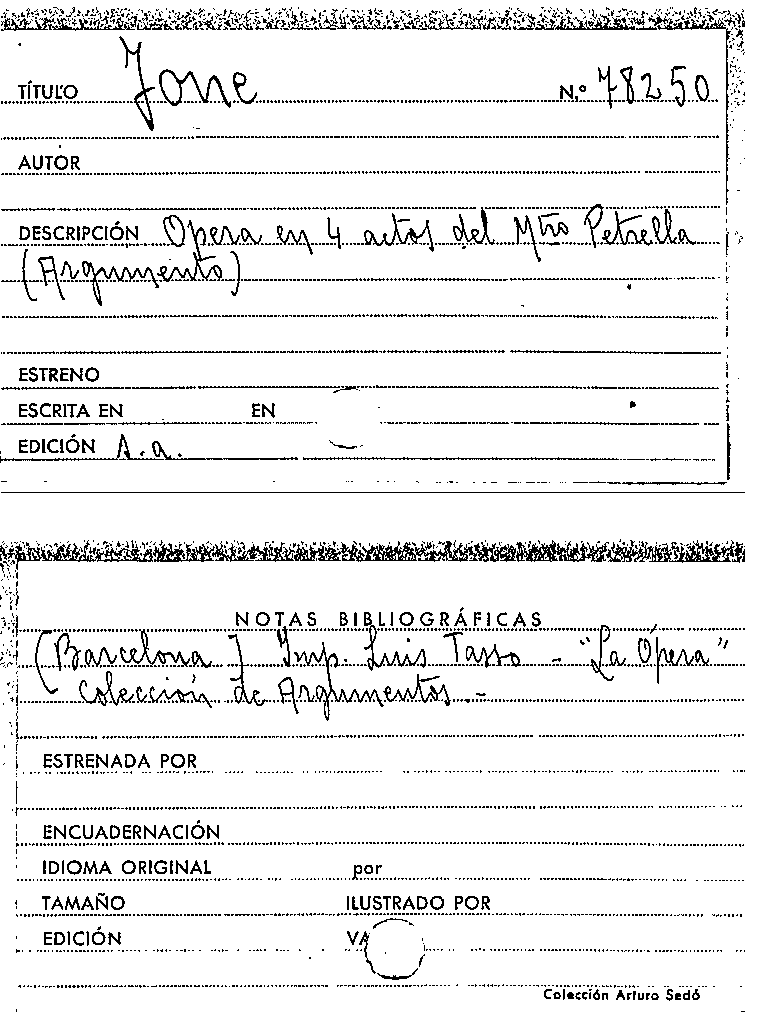 TÍTULO Jone N.º 78250
AUTOR
DESCRIPCIÓN Opera en 4 actos del Mtro Petrella
(Argumento)
ESTRENO
ESCRITA EN EN
EDICIÓN A.a.
NOTAS BIBLIOGRÁFICAS
(Barcelona) Imp. Luis Tasso - "La Ópera"
Colección de Argumentos.-
ESTRENADA POR
ENCUADERNACIÓN
IDIOMA ORIGINAL por
TAMAÑO ILUSTRADO POR
EDICIÓN VA
Colección Arturo Sedó